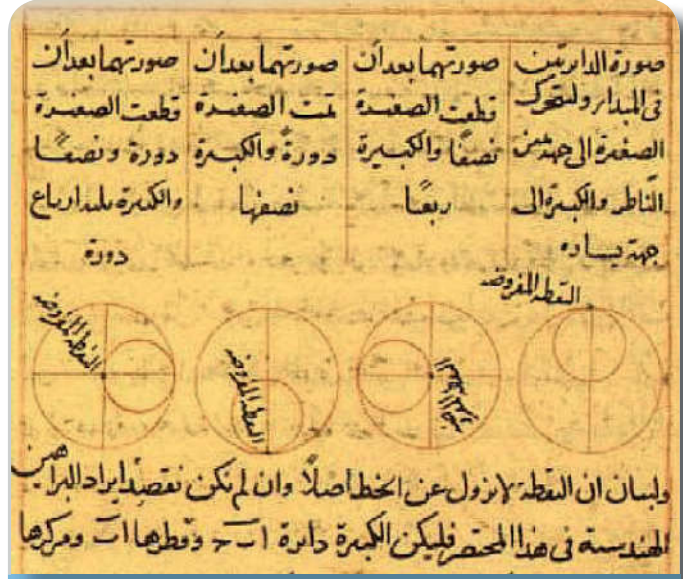 صورة الدايرتين
في المبدا ولتتحرك
الصغيرة الى جهة يمين
الناظر والكبيرة الى
جهة يساره
صورتهما بعد أن
قطعت الصغيرة
نصفًا والكبيرة
ربعًا
صورتهما بعد أن
تمت الصغيرة
دورةً والكبيرة
نصفها
صورتهما بعد أن
قطعت الصغيرة
دورة ونصفًا
والكبيرة ثلثة ارباع
دورة
النقطة المفروضة
النقطة المفروضة
النقطة المفروضة
النقطة المفروضة
ولبيان ان النقطة لا تزول عن الخط اصلًا وان لم نكن نقصد ايراد البراهين
الهندسية في هذا المختصر فليكن الكبيرة دائرة ا ب ج وقطرها ا ب ومركزها